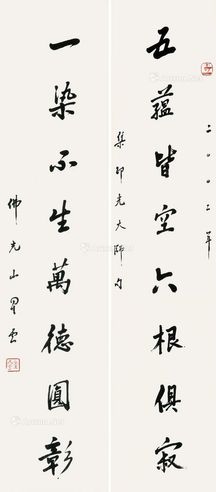 二〇〇二年
五蘊皆空六根俱寂
集印光大師句
一染不生萬德圓彰
佛光山星云